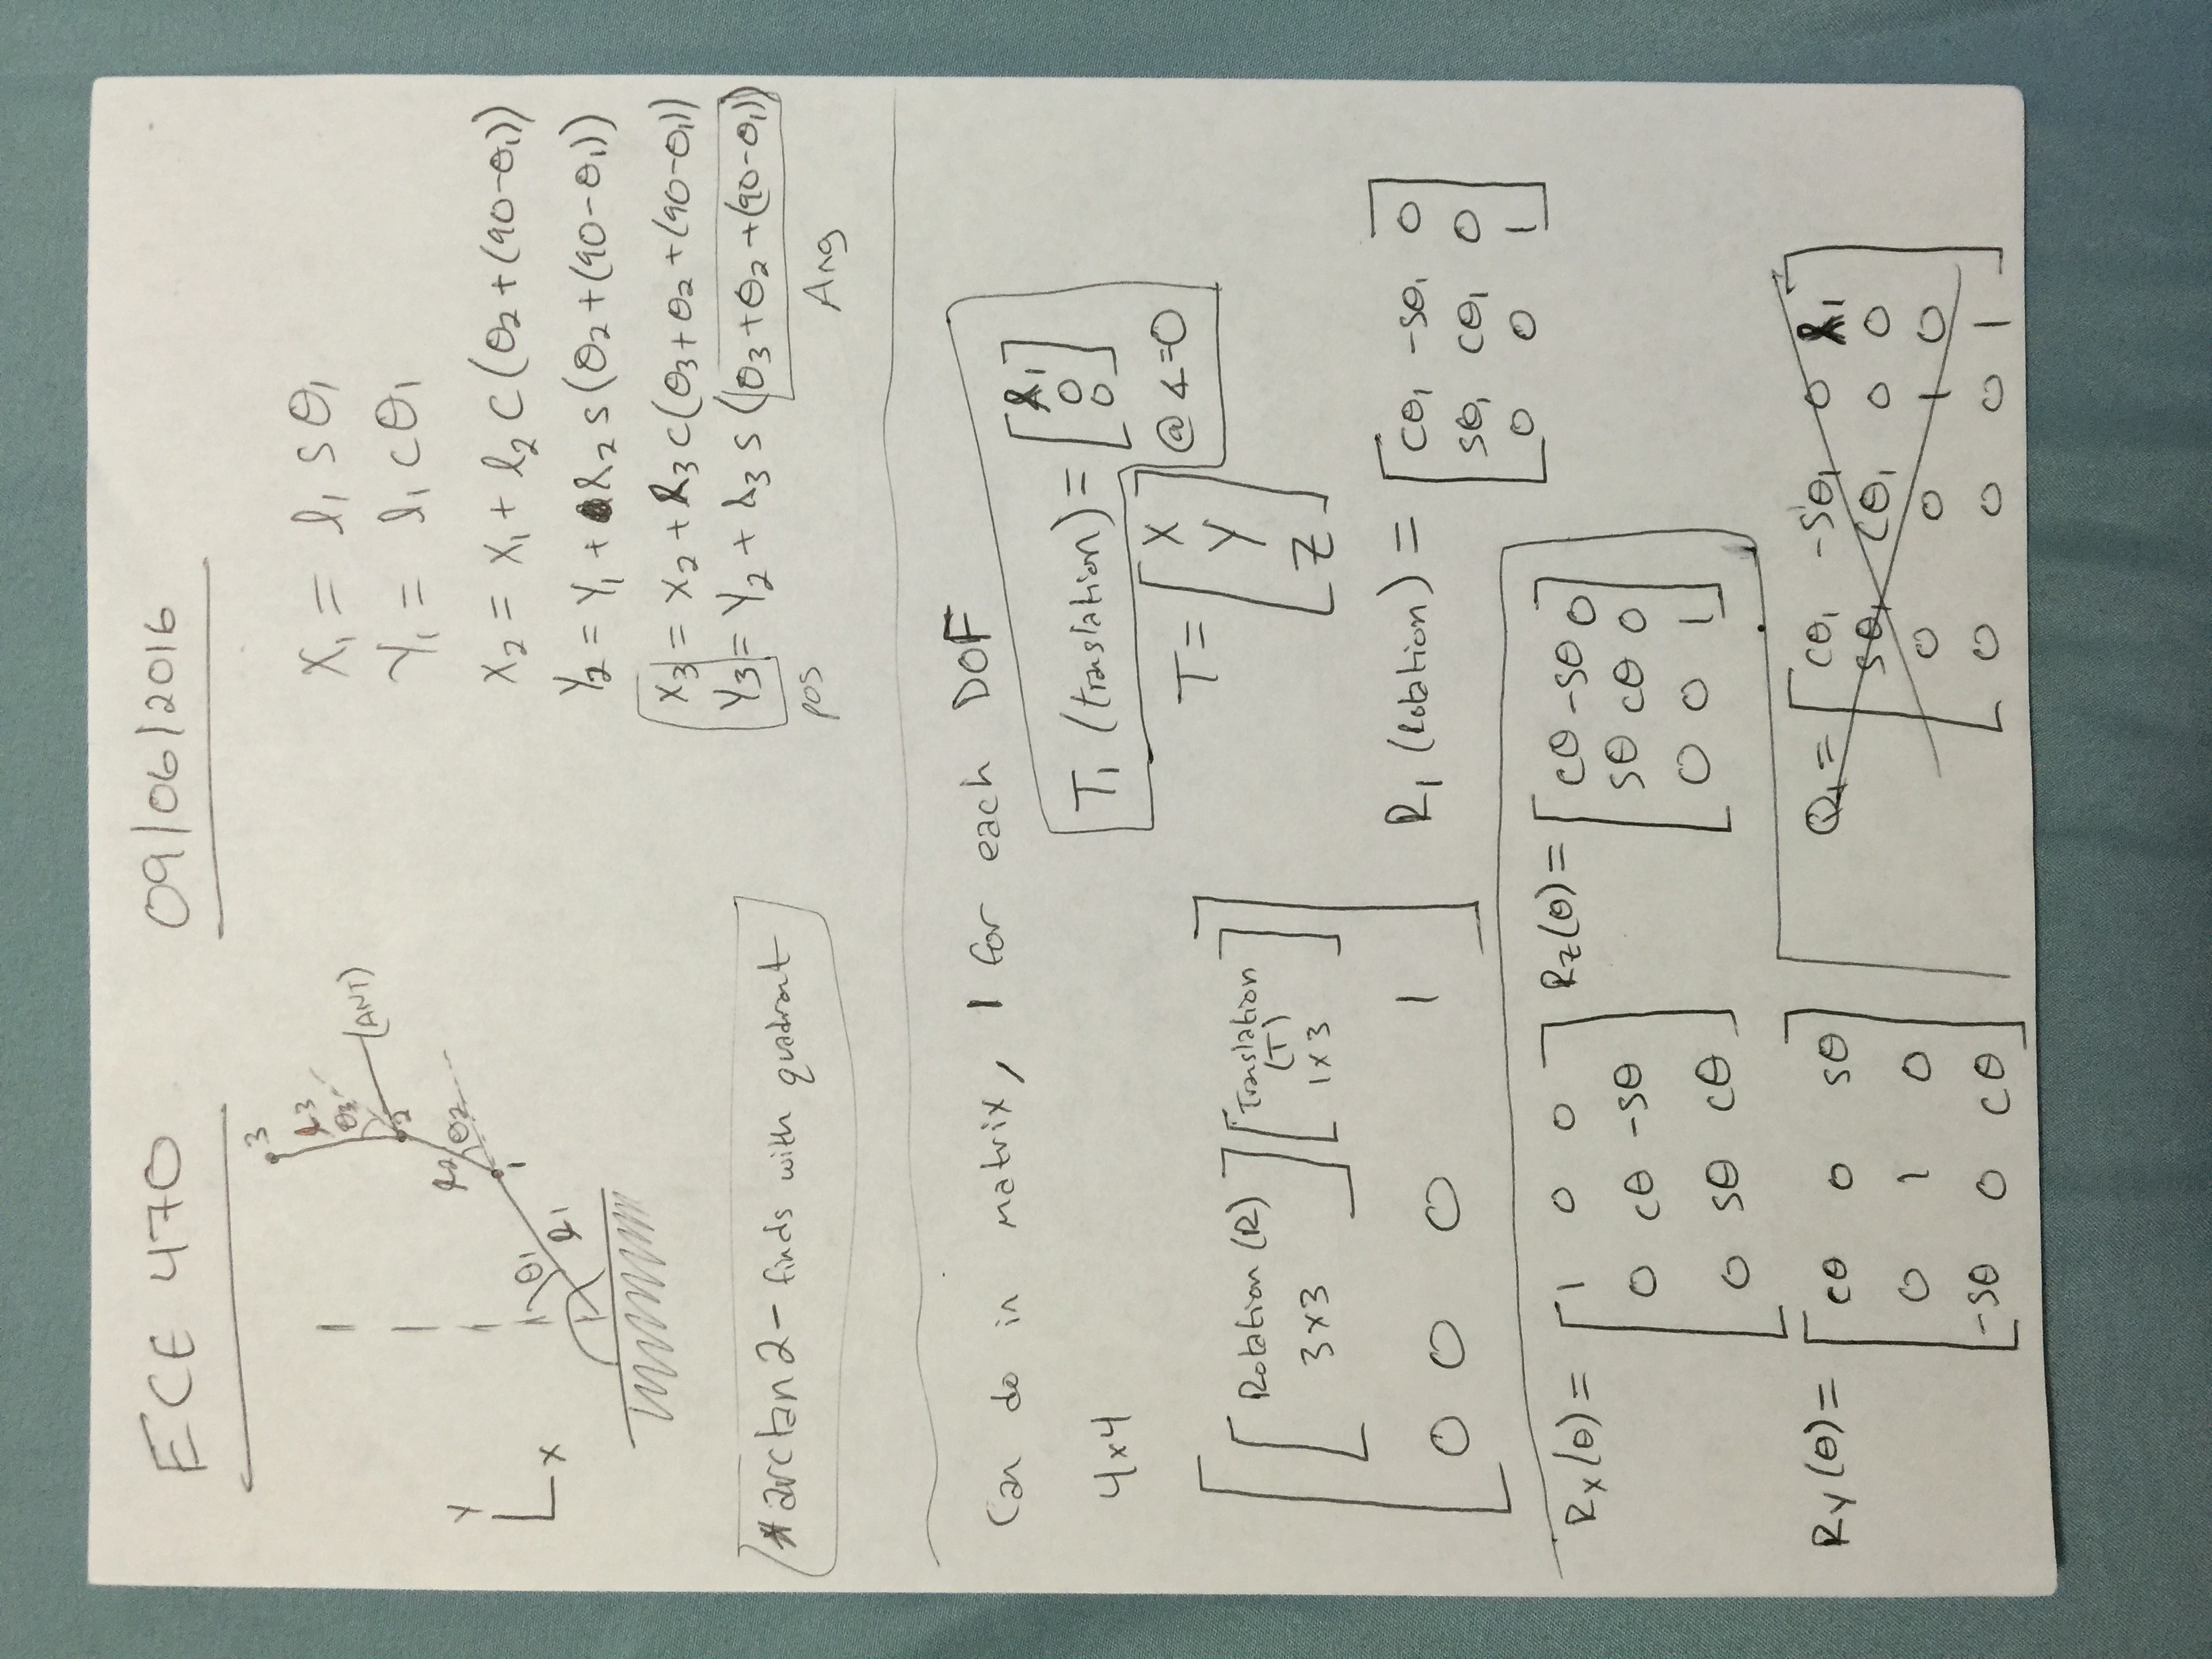 ECE 470 09/06/2016
Y
x
θ1
l1
1
l2
θ2
2
θ3
l3
3
(ANT)
X1 = l1 sθ1
Y1 = l1 cθ1
X2 = X1 + l2 C(θ2+(90-θ1))
Y2 = Y1 + l2 S(θ2+(90-θ1))
X3 = X2 + l3 C(θ3+θ2+(90-θ1))
Y3 = Y2 + l3 S(θ3+θ2+(90-θ1))
pos Ang
*arctan2 - finds with quadrant
Can do in matrix, 1 for each DOF
4x4
Rotation (R) Translation
3x3 (T)
1x3
0 0 0 1
T1 (translation) = [l1
0
0]
T = [X
Y
Z]
@ 4=0
R1 (Rotation) = [cθ1 -sθ1 0
sθ1 cθ1 0
0 0 1]
Rx(θ) = [1 0 0
0 cθ -sθ
0 sθ cθ]
Rz(θ) = [cθ -sθ 0
sθ cθ 0
0 0 1]
Ry(θ) = [cθ 0 sθ
0 1 0
-sθ 0 cθ]
Q1 = [cθ1 -sθ1 0 l1
sθ1 cθ1 0 0
0 0 1 0
0 0 0 1]